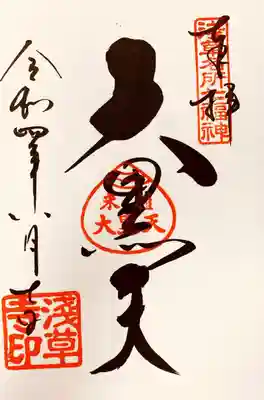 奉拝
浅草名所七福神
大黒天
米櫃
大黒天
令和四年八月吉日
浅草寺印